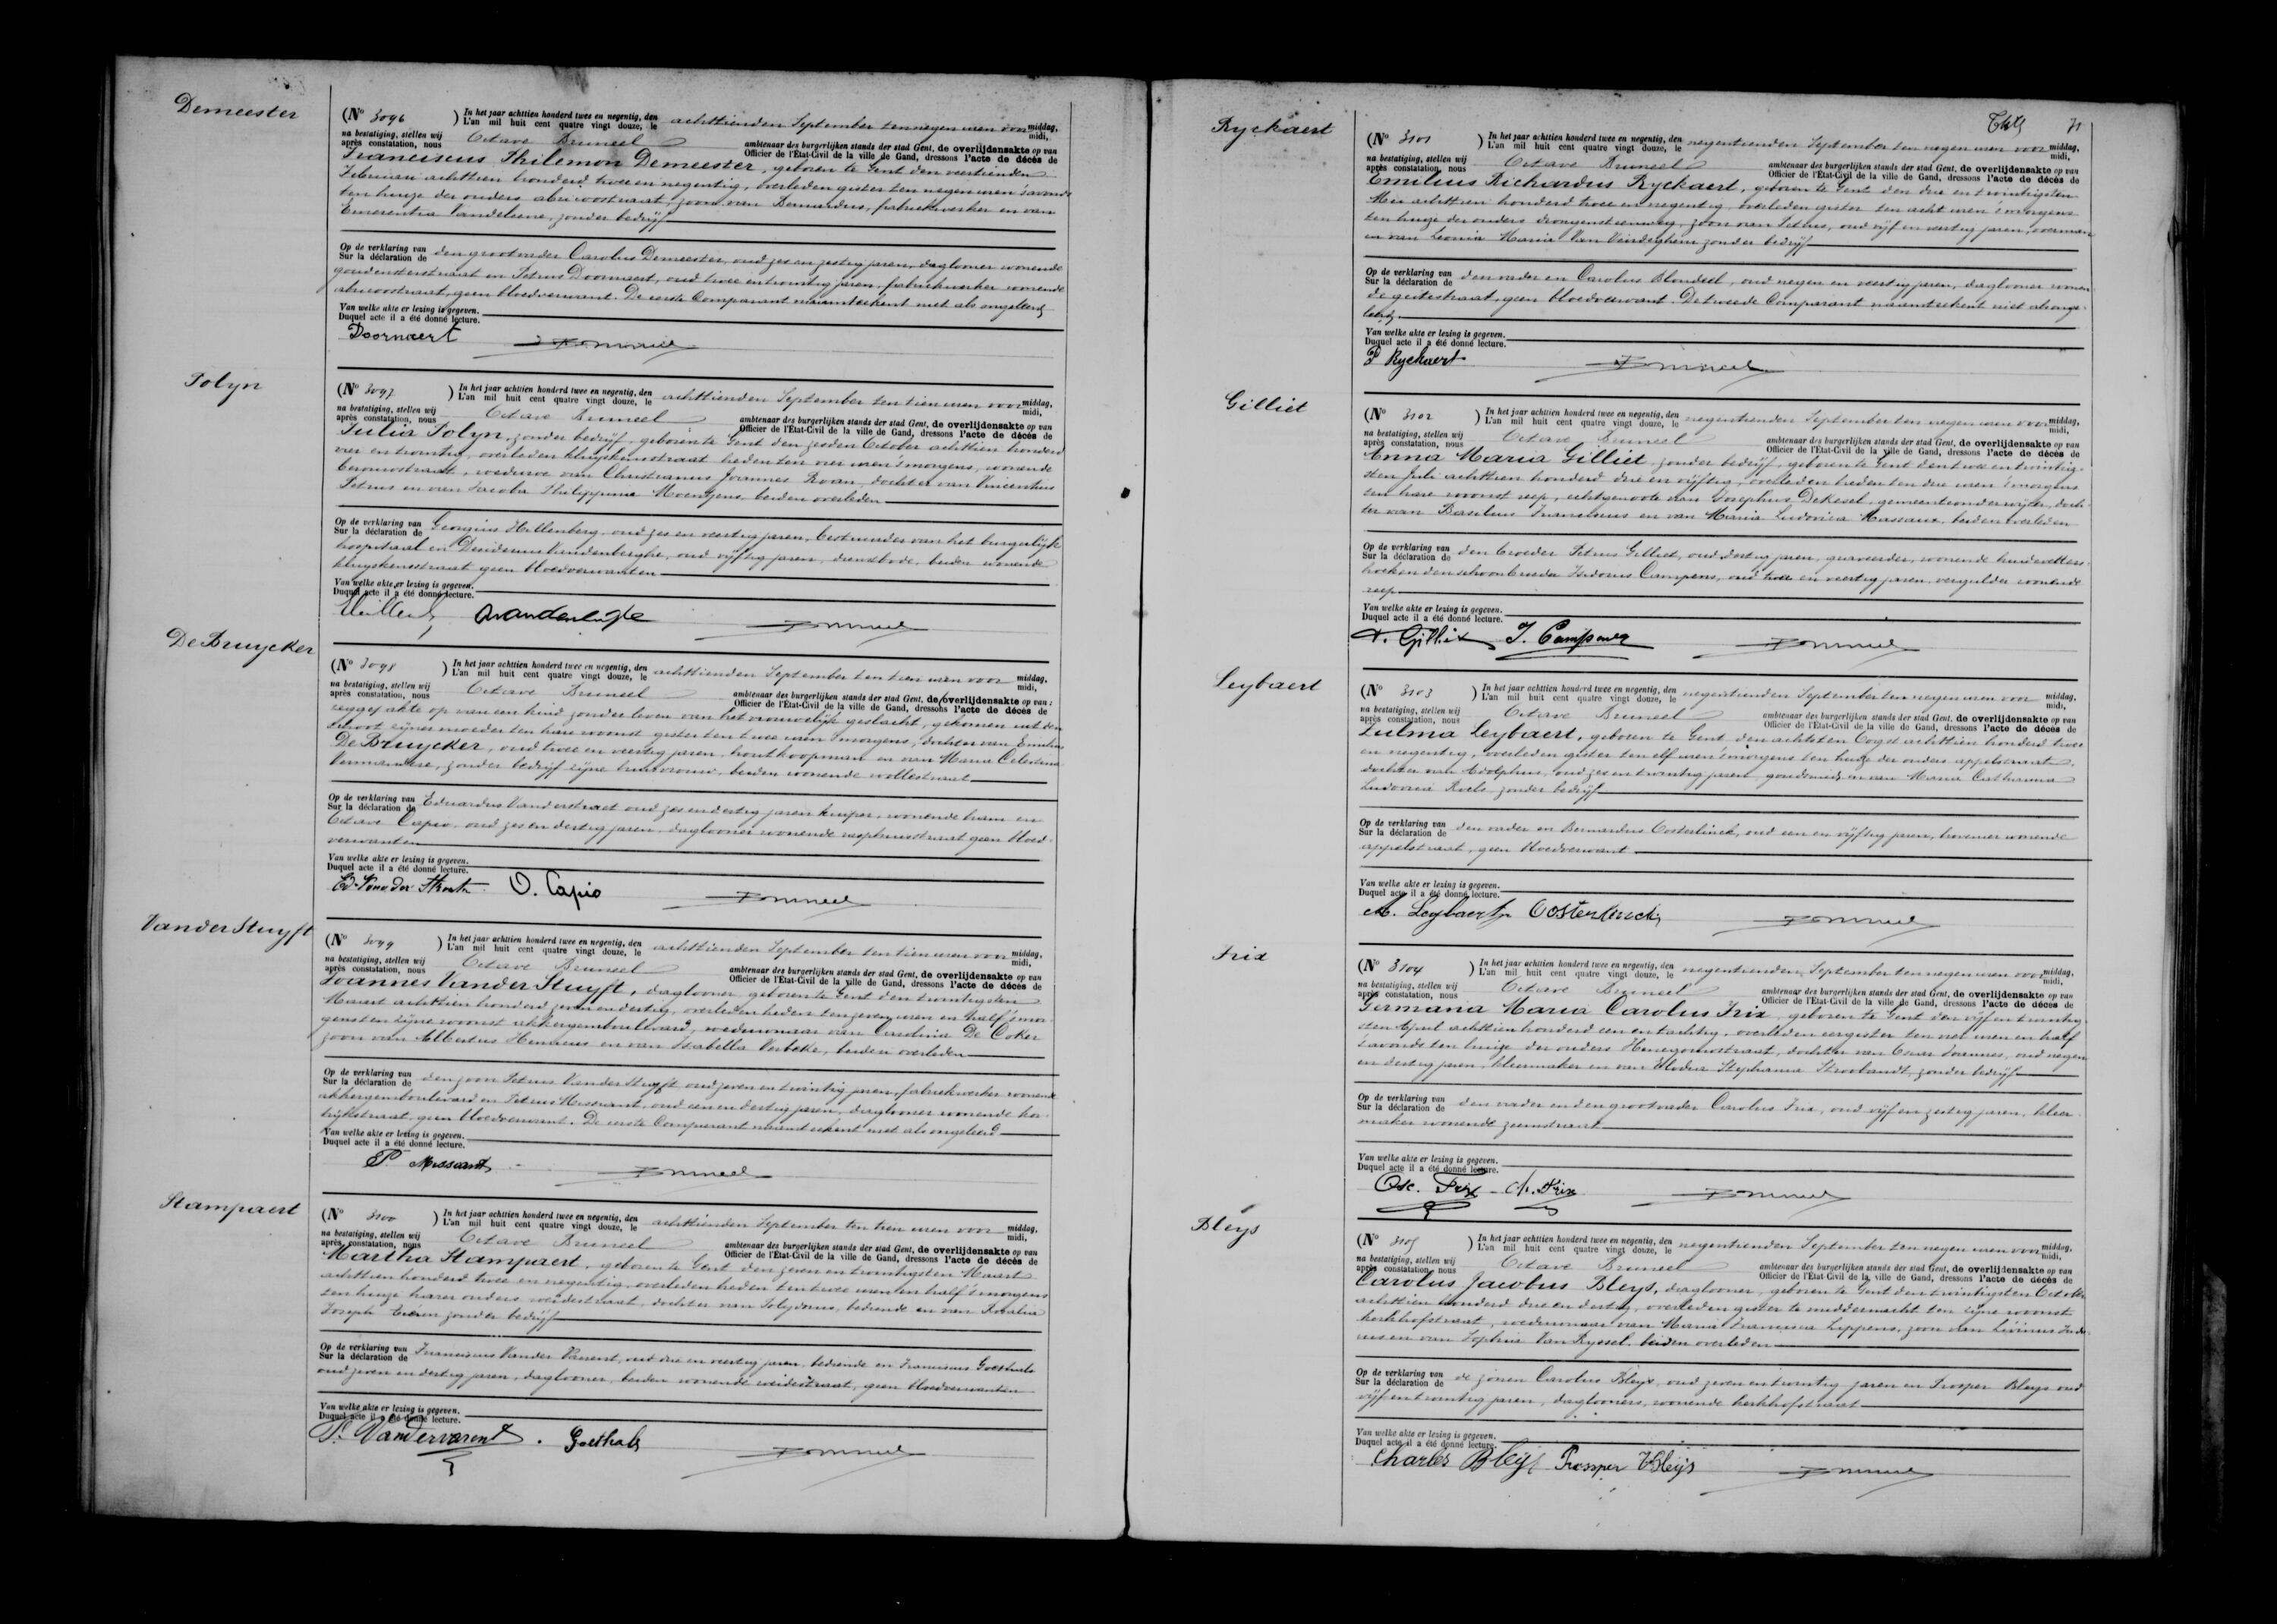 Demeester
(No 3096 ) In het jaar achttien honderd twee en negentig, den achttienden September ten negen uren voor middag,
L'an mil huit cent quatre vingt douze, le midi,
na bestatiging, stellen wij Octave Bruneel ambtenaar des burgerlijken stands der stad Gent, de overlijdensakte op van
après constatation, nous Officier de l'État-Civil de la ville de Gand, dressons l'acte de décès de
Franciscus Philemon Demeester, geboren te Gent den veertienden
Februari achttien honderd twee en negentig, overleden gister ten negen uren 's avonds
ten huize der ouders abeelstraat, zoon van Bernardus, fabriekwerker en van
Emerentia Vandeleene, zonder bedrijf
Op de verklaring van den grootvader Carolus Demeester, oud zes en zestig jaren, daglooner wonende
Sur la déclaration de
goudensterstraat en Petrus Doornaert, oud twee en twintig jaren, fabriekwerker wonende
geen bloedverwant. De eerste Comparant naamteekent niet als ongeleerd
Van welke akte er lezing is gegeven.
Duquel acte il a été donné lecture.
Doornaert Bruneel
Polyn
(No 3097 ) In het jaar achttien honderd twee en negentig, den achttienden September ten tien uren voor middag,
L'an mil huit cent quatre vingt douze, le midi,
na bestatiging, stellen wij Octave Bruneel ambtenaar des burgerlijken stands der stad Gent, de overlijdensakte op van
après constatation, nous Officier de l'État-Civil de la ville de Gand, dressons l'acte de décès de
Julia Polyn, zonder bedrijf, geboren te Gent den zesden October achttien honderd
vier en twintig, overleden kluyskensstraat heden ten vier uren 's morgens, wonende
weduwe van Christianus Joannes Roan, dochter van Vincentius
Petrus en van Jacoba Philippina Moentjens, beiden overleden
Op de verklaring van Georgius Hillenberg, oud zes en veertig jaren, bestuurder van het burgerlijk
Sur la déclaration de
hospitaal en Desiderius Vandenberghe, oud vijftig jaren, dienstbode, beiden wonende
kluyskensstraat geen bloedverwanten
Van welke akte er lezing is gegeven.
Duquel acte il a été donné lecture.
Bruneel
De Bruycker
(No 3098 ) In het jaar achttien honderd twee en negentig, den achttienden September ten tien uren voor middag,
L'an mil huit cent quatre vingt douze, le midi,
na bestatiging, stellen wij Octave Bruneel ambtenaar des burgerlijken stands der stad Gent, de overlijdensakte op van :
après constatation, nous Officier de l'État-Civil de la ville de Gand, dressons l'acte de décès de
zeggen akte op van een kind zonder leven van het vrouwelijk geslacht, gekomen uit den
schoot zijner moeder ten hare woonst gister ten twee uren 's morgens, dochter van Emilius
De Bruycker, oud twee en veertig jaren, houtkoopman en van Maria Celestina
Vermandere, zonder bedrijf zijne huisvrouw, beiden wonende wollestraat
Op de verklaring van Eduardus Vanderstraet oud zes en dertig jaren kuiper, wonende ham en
Sur la déclaration de
Octave Capio, oud zes en dertig jaren, daglooner wonende geen bloed-
verwanten
Van welke akte er lezing is gegeven.
Duquel acte il a été donné lecture.
O. Capio Bruneel
Vander Stuyft
(No 3099 ) In het jaar achttien honderd twee en negentig, den achttienden September ten tien uren voor middag,
L'an mil huit cent quatre vingt douze, le midi,
na bestatiging, stellen wij Octave Bruneel ambtenaar des burgerlijken stands der stad Gent, de overlijdensakte op van
après constatation, nous Officier de l'État-Civil de la ville de Gand, dressons l'acte de décès de
Joannes Vander Stuyft, daglooner geboren te Gent den twintigsten
Maart achttien honderd zeven en dertig, overleden heden ten zeven uren en half 's mor-
gens ten zijne woonst akkergemboulevard, weduwnaar van Carolina De Coker
zoon van Albertus Henricus en van Isabella Verbeke, beiden overleden
Op de verklaring van den zoon Petrus Vander Stuyft oud zeven en twintig jaren, fabriekwerker wonende
Sur la déclaration de
akkergemboulevard en Petrus Missuant, oud een en dertig jaren, daglooner wonende
geen bloedverwant. De eerste Comparant naamteekent niet als ongeleerd
Van welke akte er lezing is gegeven.
Duquel acte il a été donné lecture.
P. Missuant Bruneel
Stampaert
(No 3100 ) In het jaar achttien honderd twee en negentig, den achttienden September ten tien uren voor middag,
L'an mil huit cent quatre vingt douze, le midi,
na bestatiging, stellen wij Octave Bruneel ambtenaar des burgerlijken stands der stad Gent, de overlijdensakte op van
après constatation, nous Officier de l'État-Civil de la ville de Gand, dressons l'acte de décès de
Martha Stampaert, geboren te Gent den zeven en twintigsten Maart
achttien honderd twee en negentig, overleden heden ten twee uren en half 's morgens
ten huize harer ouders weidestraat, dochter van Polydorus, bediende en van Rosalia
Joseph zonder bedrijf
Op de verklaring van Franciscus Vander Varent, oud drie en veertig jaren, bediende en Franciscus Goethals
Sur la déclaration de
oud zeven en dertig jaren, daglooner, beiden wonende weidestraat, geen bloedverwanten
Van welke akte er lezing is gegeven.
Duquel acte il a été donné lecture.
Vandervarent. Goethals Bruneel
31
Ryckaert
(No 3101 ) In het jaar achttien honderd twee en negentig, den negentienden September ten negen uren voor middag,
L'an mil huit cent quatre vingt douze, le midi,
na bestatiging, stellen wij Octave Bruneel ambtenaar des burgerlijken stands der stad Gent, de overlijdensakte op van
après constatation, nous Officier de l'État-Civil de la ville de Gand, dressons l'acte de décès de
Emilius Richardus Ryckaert, geboren te Gent den drie en twintigsten
Mei achttien honderd twee en negentig, overleden gister ten acht uren 's morgens
ten huize der ouders drongensteenweg, zoon van Petrus, oud vijf en veertig jaren, voerman
en van Leonia Maria Van Vinderghem zonder bedrijf
Op de verklaring van den vader en Carolus Blondeel, oud negen en veertig jaren, daglooner wonen-
Sur la déclaration de
de geen bloedverwant. De tweede Comparant naamteekent niet als onge-
leerd.
Van welke akte er lezing is gegeven.
Duquel acte il a été donné lecture.
P Ryckaert Bruneel
Gilliet
(No 3102 ) In het jaar achttien honderd twee en negentig, den negentienden September ten negen uren voor middag,
L'an mil huit cent quatre vingt douze, le midi,
na bestatiging, stellen wij Octave Bruneel ambtenaar des burgerlijken stands der stad Gent, de overlijdensakte op van
après constatation, nous Officier de l'État-Civil de la ville de Gand, dressons l'acte de décès de
Anna Maria Gilliet, zonder bedrijf, geboren te Gent den twee en twintig-
sten Juli achttien honderd drie en vijftig, overleden heden ten drie uren 's morgens
ten hare woonst reep, echtgenoote van Josephus DeKesel, gemeenteonderwijzer, doch-
ter van Basilius Franciscus en van Maria Ludovica Massaux, beiden overleden
Op de verklaring van den broeder Petrus Gilliet, oud dertig jaren, graveerder, wonende
Sur la déclaration de
hoek en den schoonbroeder Isidorus Campens, oud twee en veertig jaren, vergulder wonende
reep
Van welke akte er lezing is gegeven.
Duquel acte il a été donné lecture.
P. Gilliet J. Campens Bruneel
Leybaert
(No 3103 ) In het jaar achttien honderd twee en negentig, den negentienden September ten negen uren voor middag,
L'an mil huit cent quatre vingt douze, le midi,
na bestatiging, stellen wij Octave Bruneel ambtenaar des burgerlijken stands der stad Gent, de overlijdensakte op van
après constatation, nous Officier de l'État-Civil de la ville de Gand, dressons l'acte de décès de
Zulma Leybaert, geboren te Gent den achtsten Oogst achttien honderd twee
en negentig, overleden gister ten elf uren 's morgens ten huize der ouders appelstraat,
dochter van Adolphus, oud zes en twintig jaren, goudsmid, en van Maria Catharina
Ludovica Roels zonder bedrijf
Op de verklaring van den vader en Bernardus Oosterlinck, oud een en vijftig jaren, hovenier wonende
Sur la déclaration de
appelstraat, geen bloedverwant
Van welke akte er lezing is gegeven.
Duquel acte il a été donné lecture.
A. Leybaert Oosterlinck Bruneel
Frix
(No 3104 ) In het jaar achttien honderd twee en negentig, den negentienden September ten negen uren voor middag,
L'an mil huit cent quatre vingt douze, le midi,
na bestatiging, stellen wij Octave Bruneel ambtenaar des burgerlijken stands der stad Gent, de overlijdensakte op van
après constatation, nous Officier de l'État-Civil de la ville de Gand, dressons l'acte de décès de
Germana Maria Carolus Frix, geboren te Gent den vijf en twintig-
sten April achttien honderd een en tachtig, overleden eergister ten vier uren en half
's avonds ten huize der ouders Henegouwstraat, dochter van Oscar Joannes, oud negen
en dertig jaren, kleermaker en van Elodia Stephania Stroobandt, zonder bedrijf
Op de verklaring van den vader en den grootvader Carolus Frix, oud vijf en zestig jaren, kleer-
Sur la déclaration de
maker wonende
Van welke akte er lezing is gegeven.
Duquel acte il a été donné lecture.
Osc. Frix Ch. Frix Bruneel
Bleys
(No 3105 ) In het jaar achttien honderd twee en negentig, den negentienden September ten negen uren voor middag,
L'an mil huit cent quatre vingt douze, le midi,
na bestatiging, stellen wij Octave Bruneel ambtenaar des burgerlijken stands der stad Gent, de overlijdensakte op van
après constatation, nous Officier de l'État-Civil de la ville de Gand, dressons l'acte de décès de
Carolus Jacobus Bleys, daglooner, geboren te Gent den twintigsten October
achttien honderd drie en dertig, overleden gister te middernacht ten zijne woonst
kerkhofstraat, weduwnaar van Maria Francisca Lippens, zoon van Livinus
en van Sophia Van Ryssel, beiden overleden
Op de verklaring van de zonen Carolus Bleys, oud zeven en twintig jaren en Prosper Bleys oud
Sur la déclaration de
vijf en twintig jaren, daglooners, wonende kerkhofstraat
Van welke akte er lezing is gegeven.
Duquel acte il a été donné lecture.
Charles Bleys Prosper Bleys Bruneel